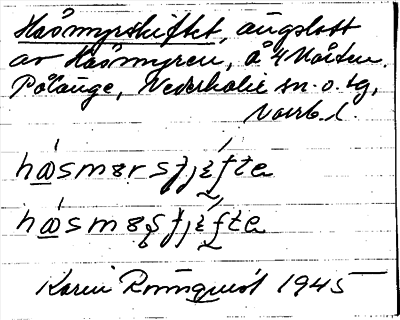 Håsmyrskiftet, ängslott
av Håsmyren, å 4 Mårten.
Pålänge, Nederkalix sn. o. tg,
Norrb. l.
hå̀smørsʃjɛ́fte
hå̀smøʂʃjɛ́fte
Karin Rönnquist 1945